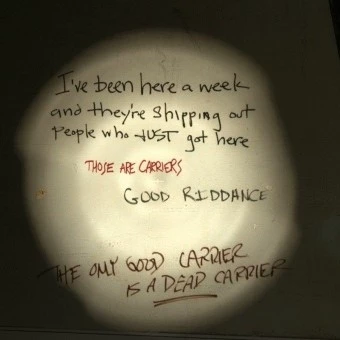 I've been here a week
and they're shipping out
people who JUST got here
THOSE ARE CARRIERS
GOOD RIDDANCE
THE ONLY GOOD CARRIER
IS A DEAD CARRIER